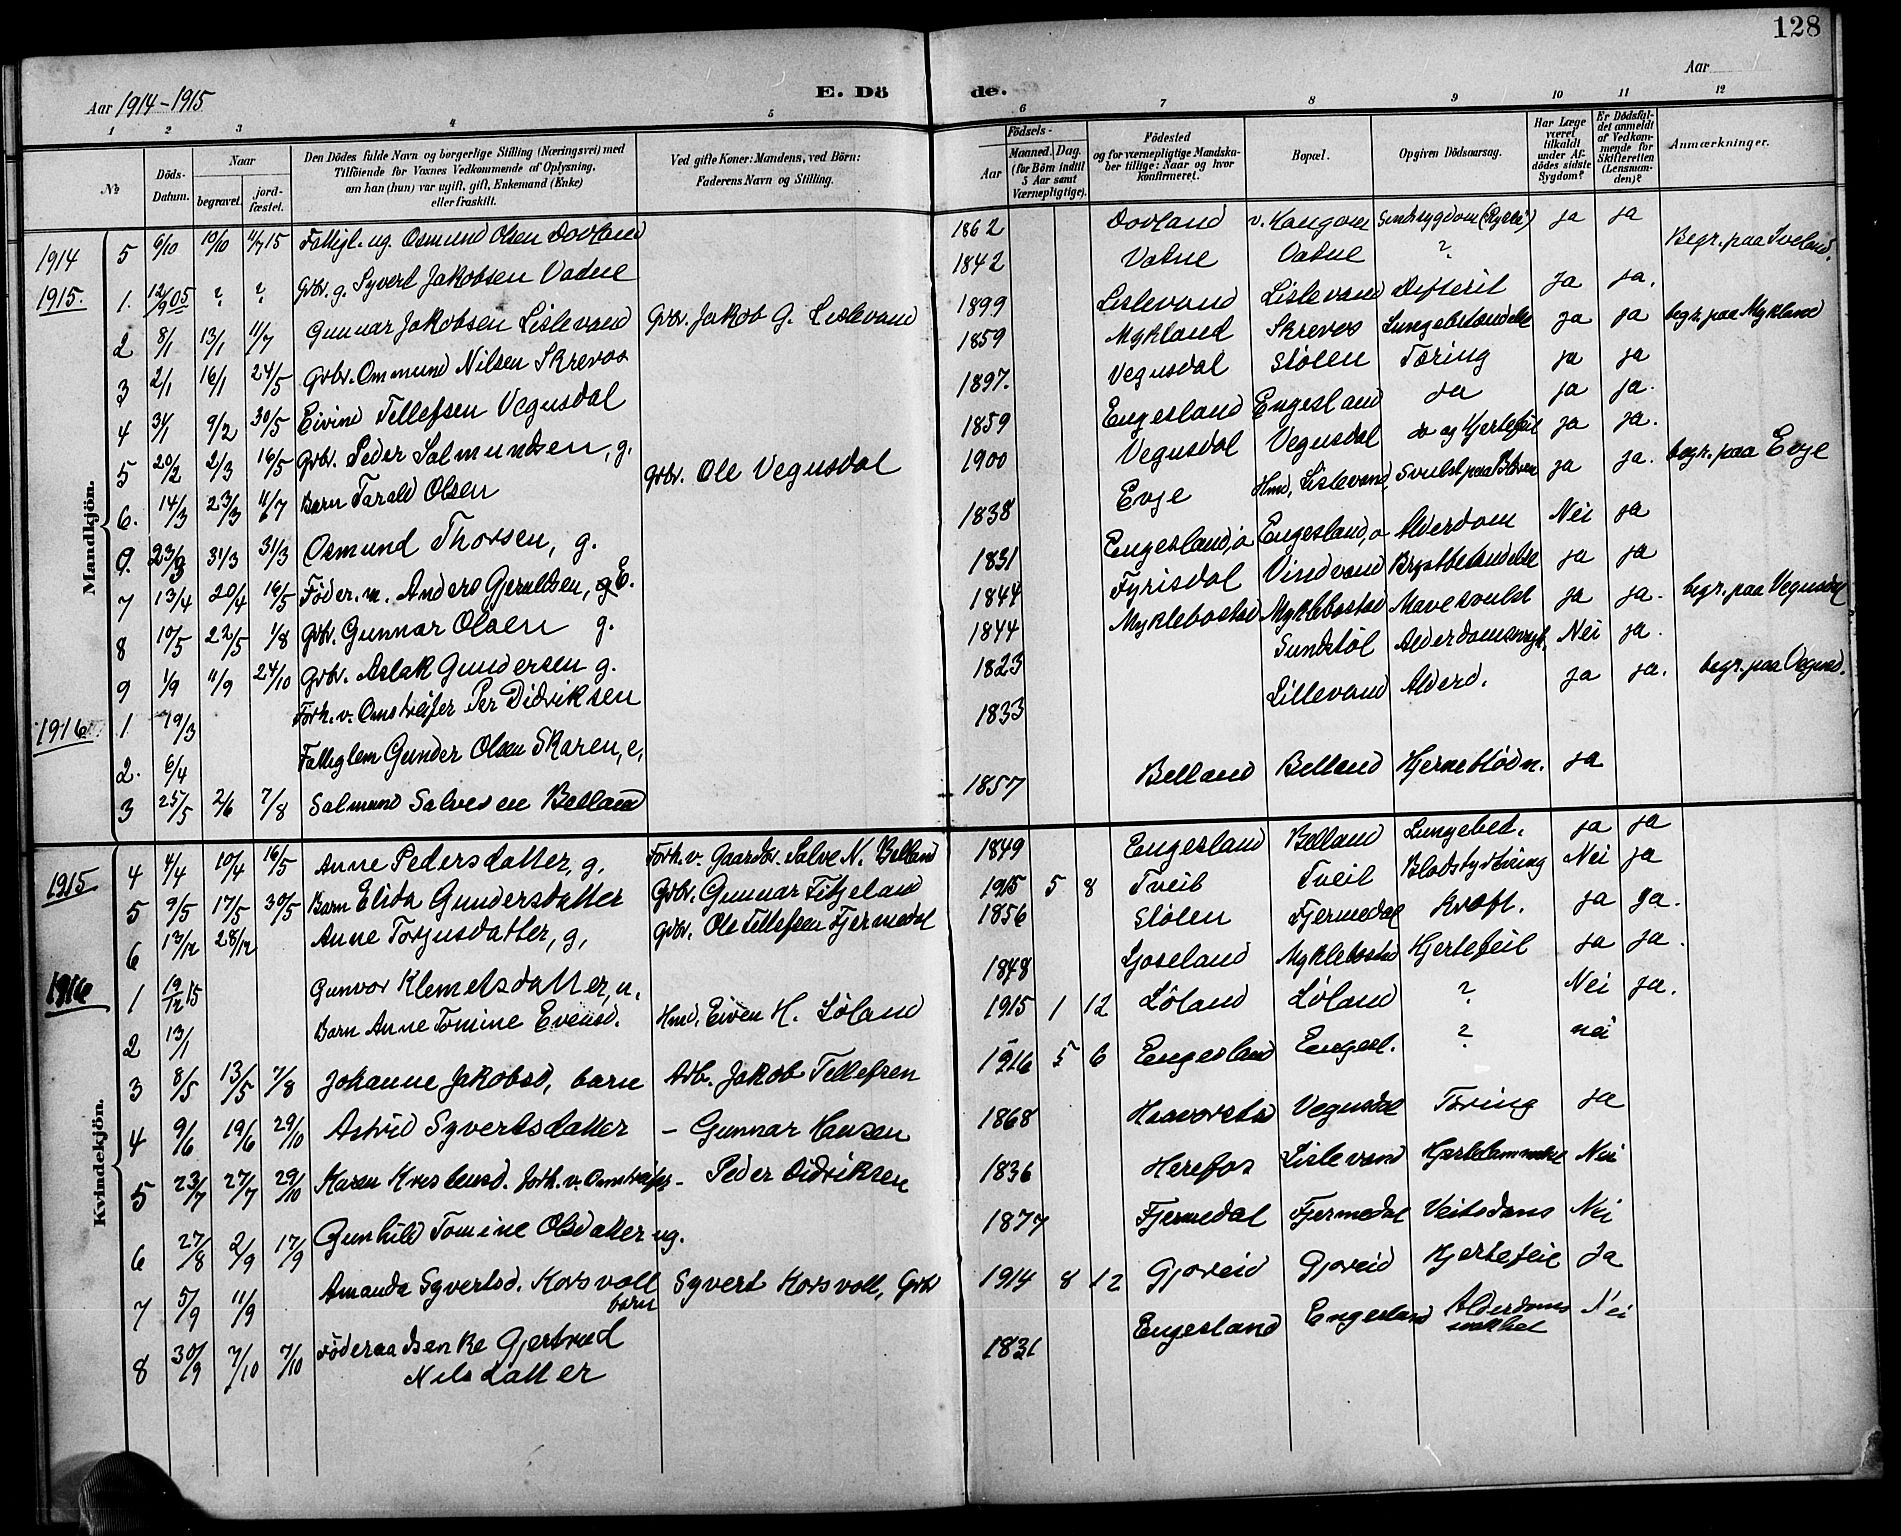 128
Aar 1914-1915
E. Dö de.
Aar
1 2 3 4 5 6 7 8 9 10 11 12
№
Döds-Datum.
Naar
begravet.
jord-fæstet.
Den Dödes fulde Navn og borgerlige Stilling (Næringsvei) med
Tilföiende för Voxnes Vedkommende af Oplysning,
om han (hun) var ugift, gift, Enkemand (Enke)
eller fraskilt.
Ved gifte Koner: Mandens, ved Börn:
Faderens Navn og Stilling.
Födsels-
Aar
Maaned. Dag.
(for Börn indtil
5 Aar samt
Værnepligtige).
Födested
og for værnepligtige Mandska-
ber tillige: Naar og hvor
konfirmeret.
Bopæl.
Opgiven Dödsaarsag.
Har Læge
været
tilkaldt
under Af-
dödes sidste
Sygdom?
Er Dödsfal-
det anmeldt
af Vedkom-
mende for
Skifteretten
(Lensman-
den)?
Anmærkninger.
Mandkjön.
1914 5 6/10 10/10 11/7 15 Fattigl. ug. Osmund Olsen Dovland 1862 Dovland ja ja
1915. 1. ? ? Grbr. g. Syvert Jakobsen Vatne 1842 Vatne Vatne ? Begr. paa Iveland.
2 8/1 13/1 11/7 Gunnar Jakobsen Lislevand Grbr. Jakob G. Lislevand 1899 Lislevand Lislevand Difterit ja ja.
3 2/1 16/1 24/5 Grbr. Ommund Nilsen Skreros 1859 Mykland Skreros Lungebetændelse ja ja begr. paa Mykland
4 31/1 9/2 30/5 Eivind Tellefsen Vegusdal 1897. Vegusdal Stolen Tæring ja ja
5 20/2 2/3 16/5 Grbr. Peder Salmundsen, g. 1859 Engesland Engesland do ja ja.
6. 14/3 23/3 11/7 Barn Tarald Olsen Grbr. Ole Vegusdal 1900 Vegusdal Vegusdal do og Hjertefeil ja ja.
31/3 31/3 Osmund Thorsen, g. 1838 Evje Hmd. Lislevand Svulst paa ja ja. begr. paa Evje
7 13/4 20/4 16/5 Föder.m. Anders Gjeruldsen, E. 1831 Engesland, ö Engesland, ö Alderdom Nei ja
8 10/5 22/5 1/8 Grbr. Gunnar Olsen g. 1844 Fyrisdal Vindvand Brystbetændelse ja ja
9 1/9 11/9 24/10 Grbr. Aslak Gundersen g. 1844 Myklebostad Myklebostad Mavesvulst ja ja. begr. paa Vegusdal
1916 1 19/3 Forh. v. Omstreifer Per Didriksen 1823 Sundstöl Nei ja.
2. 6/4 Fattiglem Gunder Olsen Skaren, e, 1833 Lillevand Alderd. ja ja. begr. paa Vegusd.
3 25/5 2/6 7/8 Salmund Salvesen Belland 1857 Belland Belland Hjerneblödn. ja
Kvindekjön.
1915 4 4/4 10/4 16/5 Anne Pedersdatter, g. Forh. v. Gaardbr. Salve N. Belland 1849 Engesland Belland Lungebet. ja ja
5 9/5 17/5 30/5 Barn Elida Gundersdatter Grbr. Gunnar Fitjeland 1915 5 8 Tveit Tveit Blodstyrtning Nei ja
6 13/12 28/12 Anne Torjusdatter, g, Grbr. Ole Tellefsen Fjermedal 1856 Stölen Fjermedal Kræft. ja ja.
1916 1 19/12 15 Gunvor Klemetsdatter, u. 1848 Ljoseland Myklebostad Hjertefeil ja ja.
2 13/1 Barn Anne Tomine Evensd. Hmd. Eiven H. Löland 1915 1 12 Löland Löland ? Nei ja.
3 8/5 13/5 7/8 Johanne Jakobsd, barn Jakob Tellefsen 1916 5 6 Engesland Engesl. ? nei
4 9/6 19/6 29/10 Astrid Syvertsdatter – Gunnar Hansen 1868 Vegusdal Tæring ja
5 23/7 27/7 29/10 Karen Kristensd. forh. v. Omstreifer – Peder Didriksen 1836 Herefos Lislevand Hjertelammelse Nei
6 27/8 2/9 17/9 Gunhild Tomine Olsdatter ug. 1877 Fjermedal Fjermedal Veitsdans Nei
7 5/9 11/9 Amanda Syvertsd. Korsvoll Syvert Korsvoll, Grbr 1914 8 12 Gjoreid Gjoreid Hjertefeil Ja
barn
8 30/9 7/10 7/10 Föderaadsenke Gjertrud 1831 Engesland Engesland Alderdoms Nei
Nilsdatter svakhet